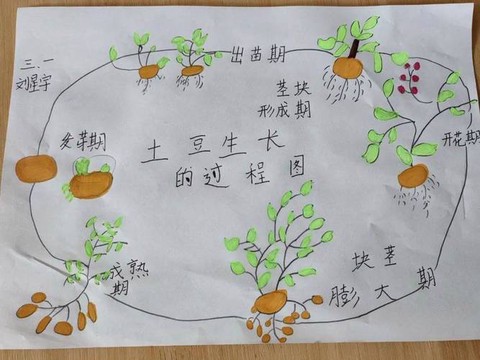 三.一
刘星宇
出苗期
茎块
形成期
开花期
发芽期
土豆生长
的过程图
成熟
期
块茎
膨大期